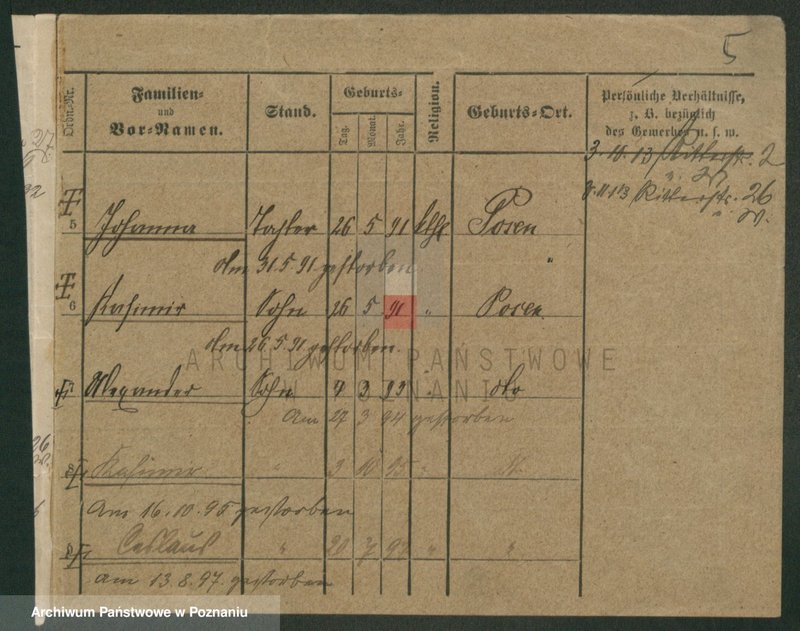 5
Ordn.-Nr.
Familien-
und
Vor-Namen.
Stand.
Geburts-
Tag.
Monat.
Jahr.
Religion.
Geburts-Ort.
Persönliche Verhältnisse,
z. B. bezüglich
des Gewerbes u. s. w.
3. 10. 13 Ritterstr. 2
3. 11. 13 Ritterstr. 26
5 Johanna Tochter 26 5 91 kath Posen
Am 31.5.91. gestorben
6 Kasimir Sohn 26 5 91 " Posen
Am 26.5.91 gestorben.
Alexander Sohn 9 3 93 " dto
Am 27 3 94 gestorben
Kasimir " 3 10 95 "
Am 16.10.95 gestorben
Ceslaus " 20 7 97 " "
Am 13.8.97. gestorben
ARCHIWUM PAŃSTWOWE
W POZNANIU
Archiwum Państwowe w Poznaniu